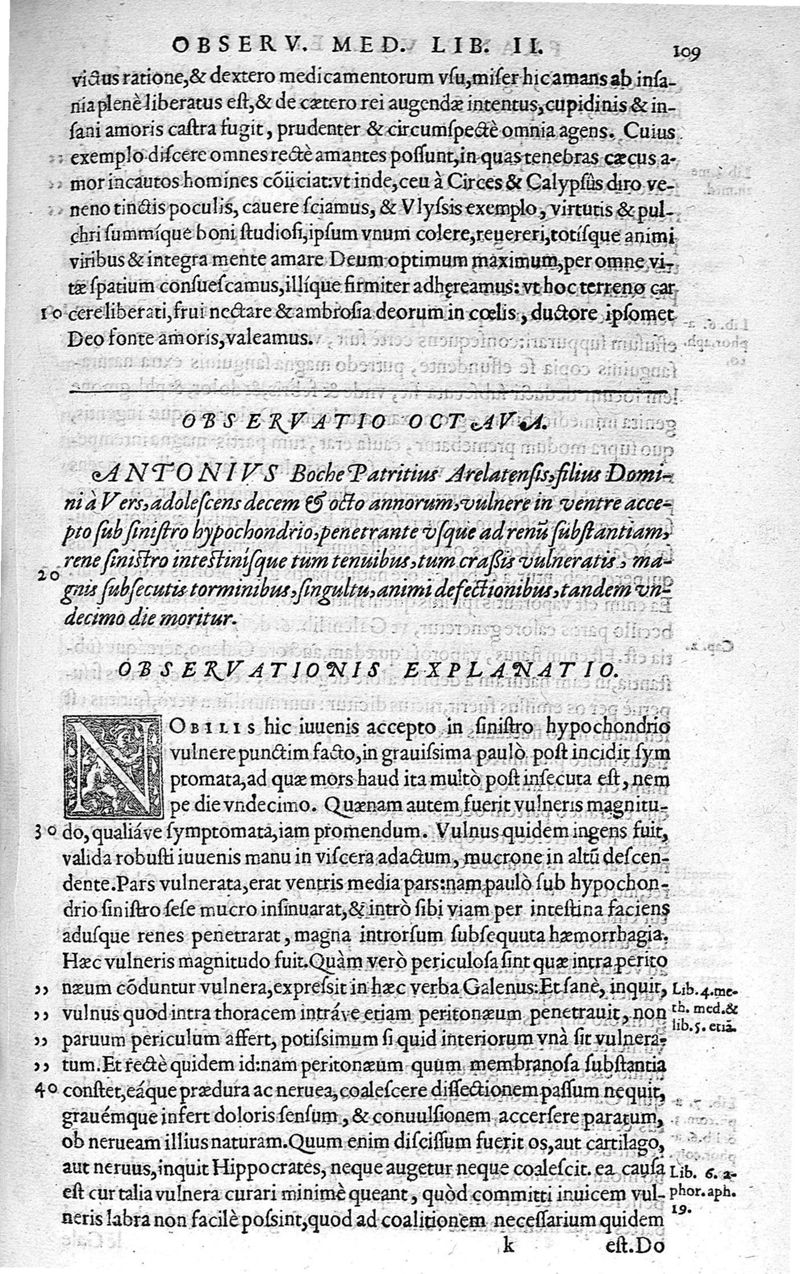 OBSERV. MED. LIB. II. 109
victus ratione, & dextero medicamentorum vsu, miser hic amans ab insa-
nia plenè liberatus est, & de cætero rei augendæ intentus, cupidinis & in-
sani amoris castra fugit, prudenter & circumspectè omnia agens. Cuius
,, exemplo discere omnes rectè amantes possunt, in quas tenebras cæcus a-
,, mor incautos homines cõiiciat: vt inde, ceu à Circes & Calypsûs diro ve-
,, neno tinctis poculis, cauere sciamus, & Vlyssis exemplo, virtutis & pul-
chri summíque boni studiosi, ipsum vnum colere, reuereri, totisque animi
viribus & integra mente amare Deum optimum maximum, per omne vi-
tæ spatium consuescamus, illíque firmiter adhęreamus: vt hoc terreno car
10 cere liberati, frui nectare & ambrosia deorum in cœlis, ductore ipsomet
Deo fonte amoris, valeamus.
OBSERVATIO OCTAVA.
ANTONIVS Boche Patritius Arelatensis, filius Domi-
ni à Vers, adolescens decem & octo annorum, vulnere in ventre acce-
pto sub sinistro hypochondrio, penetrante vsque ad renũ substantiam,
rene sinistro intestinísque tum tenuibus, tum crassis vulneratis, ma-
20 gnis subsecutis torminibus, singultu, animi defectionibus, tandem vn-
decimo die moritur.
OBSERVATIONIS EXPLANATIO.
NOBILIS hic iuuenis accepto in sinistro hypochondrio
vulnere punctim facto, in grauissima paulò post incidit sym
ptomata, ad quæ mors haud ita multò post insecuta est, nem
pe die vndecimo. Quænam autem fuerit vulneris magnitu-
30 do, qualiáve symptomata, iam promendum. Vulnus quidem ingens fuit,
valida robusti iuuenis manu in viscera adactum, mucrone in altũ descen-
dente. Pars vulnerata, erat ventris media pars: nam paulò sub hypochon-
drio sinistro sese mucro insinuarat, & intrò sibi viam per intestina faciens
adusque renes penetrarat, magna introrsum subsequuta hæmorrhagia.
Hæc vulneris magnitudo fuit. Quàm verò periculosa sint quæ intra perito
,, næum cõduntur vulnera, expressit in hæc verba Galenus: Et sanè, inquit, Lib. 4. me-
,, vulnus quod intra thoracem intráve etiam peritonæum penetrauit, non th. med. &
,, paruum periculum affert, potissimum si quid interiorum vnà sit vulnera- lib. 5. etiã.
,, tum. Et rectè quidem id: nam peritonæum quum membranosa substantia
40 constet, eáque prædura ac neruea, coalescere dissectionem passum nequit,
grauémque infert doloris sensum, & conuulsionem accersere paratum,
ob nerueam illius naturam. Quum enim discissum fuerit os, aut cartilago,
aut neruus, inquit Hippocrates, neque augetur neque coalescit. ea causa Lib. 6. a-
est cur talia vulnera curari minimè queant, quòd committi inuicem vul- phor. aph.
neris labra non facilè possint, quod ad coalitionem necessarium quidem 19.
k est. Do